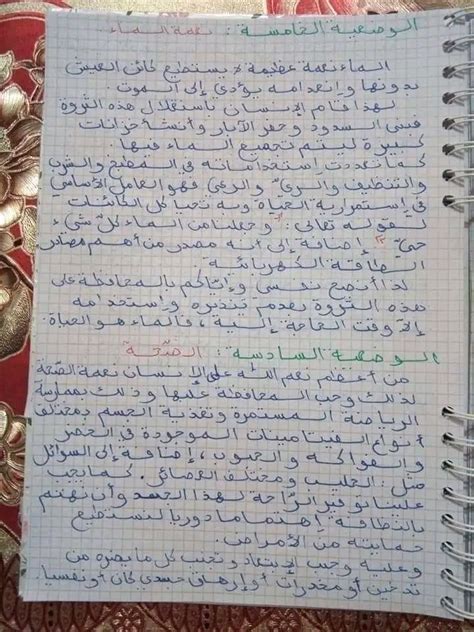 الوضعية الخامسة : نعمة الماء
الماء نعمة عظيمة لا يستطيع كائن العيش
بدونها وإنعدامه يؤدي إلى الموت.
لهذا قام الإنسان باستغلال هذه الثروة
فبنى السدود وحفر الآبار وأنشأ خزانات
كبيرة ليتم تجميع الماء فيها.
كما تعددت إستخداماته في المطبخ والشرب
والتنظيف والري والرعي فهو العامل الأساسي
في إستمرارية الحياة وبه تحيا كل الكائنات
لقوله تعالى: "وجعلنا من الماء كلّ شيء
حيّ" إضافة إلى أنه مصدر من أهم مصادر
الطاقة الكهربائية.
لذا أنصح نفسي وإياكم بالمحافظة على
هذه الثروة بعدم تبذيره وإستخدامه
إلا وقت الحاجة إليه، فالماء هو الحياة.
الوضعية السادسة : الصّحة
من أعظم نعم الله على الإنسان نعمة الصّحة
لذلك وجب المحافظة عليها وذلك بممارسة
الرياضة المستمرة وتغذية الجسم بمختلف
أنواع الفيتامينات الموجودة في الخضر
والفواكه والحبوب، إضافة إلى السوائل
مثل: الحليب ومختلف العصائر. كما يجب
علينا توفير الرّاحة لهذا الجسد وأن نهتم
بالنظافة إهتماما دوريا لنستطيع
حمايته من الأمراض.
وعليه وجب الإبتعاد وتجنب كل ما يضره من
تدخين أو مخدرات أو إرهاق جسدي كان أو نفسيا.